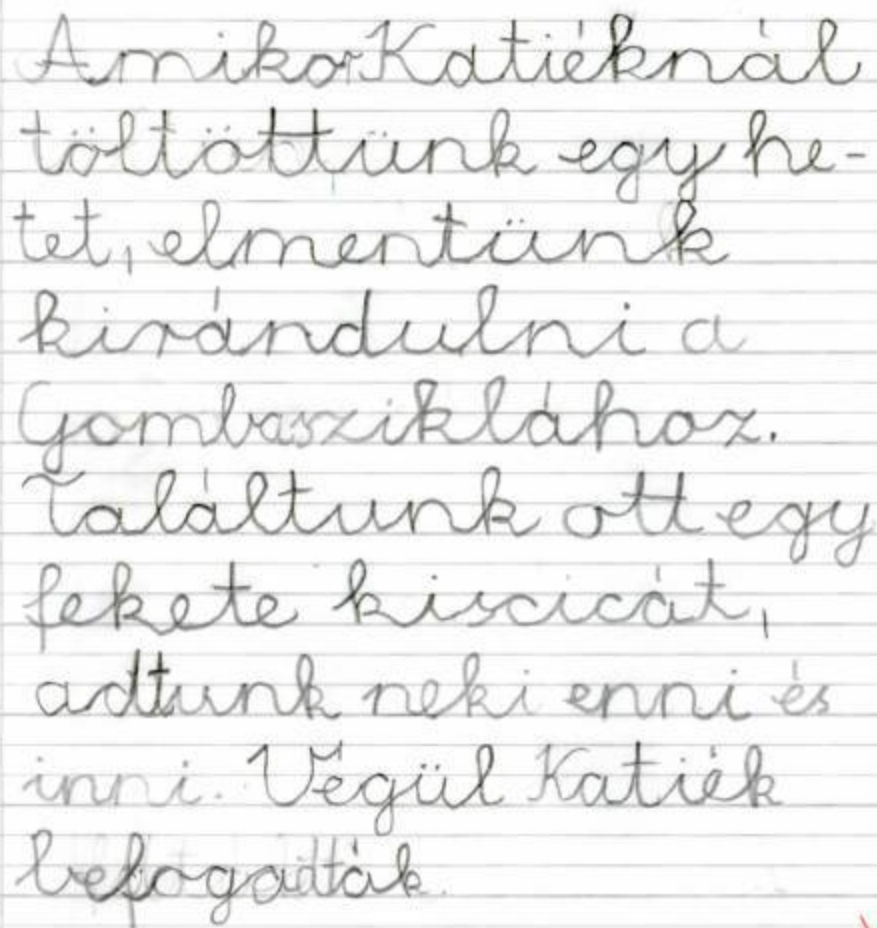 Amikor Katiéknál
töltöttünk egy he-
tet, elmentünk
kirándulni a
Gombasziklához.
Találtunk ott egy
fekete kiscicát,
adtunk neki enni és
inni. Végül Katiék
befogadták.